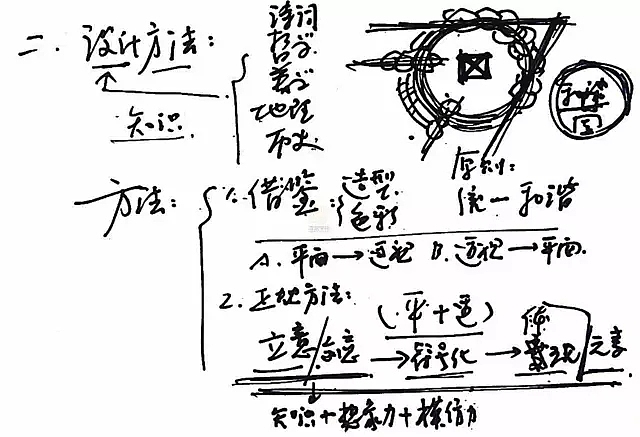 二. 设计方法:
诗词
哲学
美学
地理
历史
知识
和谐
原则:
统一 和谐
方法:
1. 借鉴: 造型 色彩
A. 平面→透视 B. 透视→平面.
2. 正规方法:
(平+透)
立意/寓意→符号化→元素
知识+想象力+模仿力